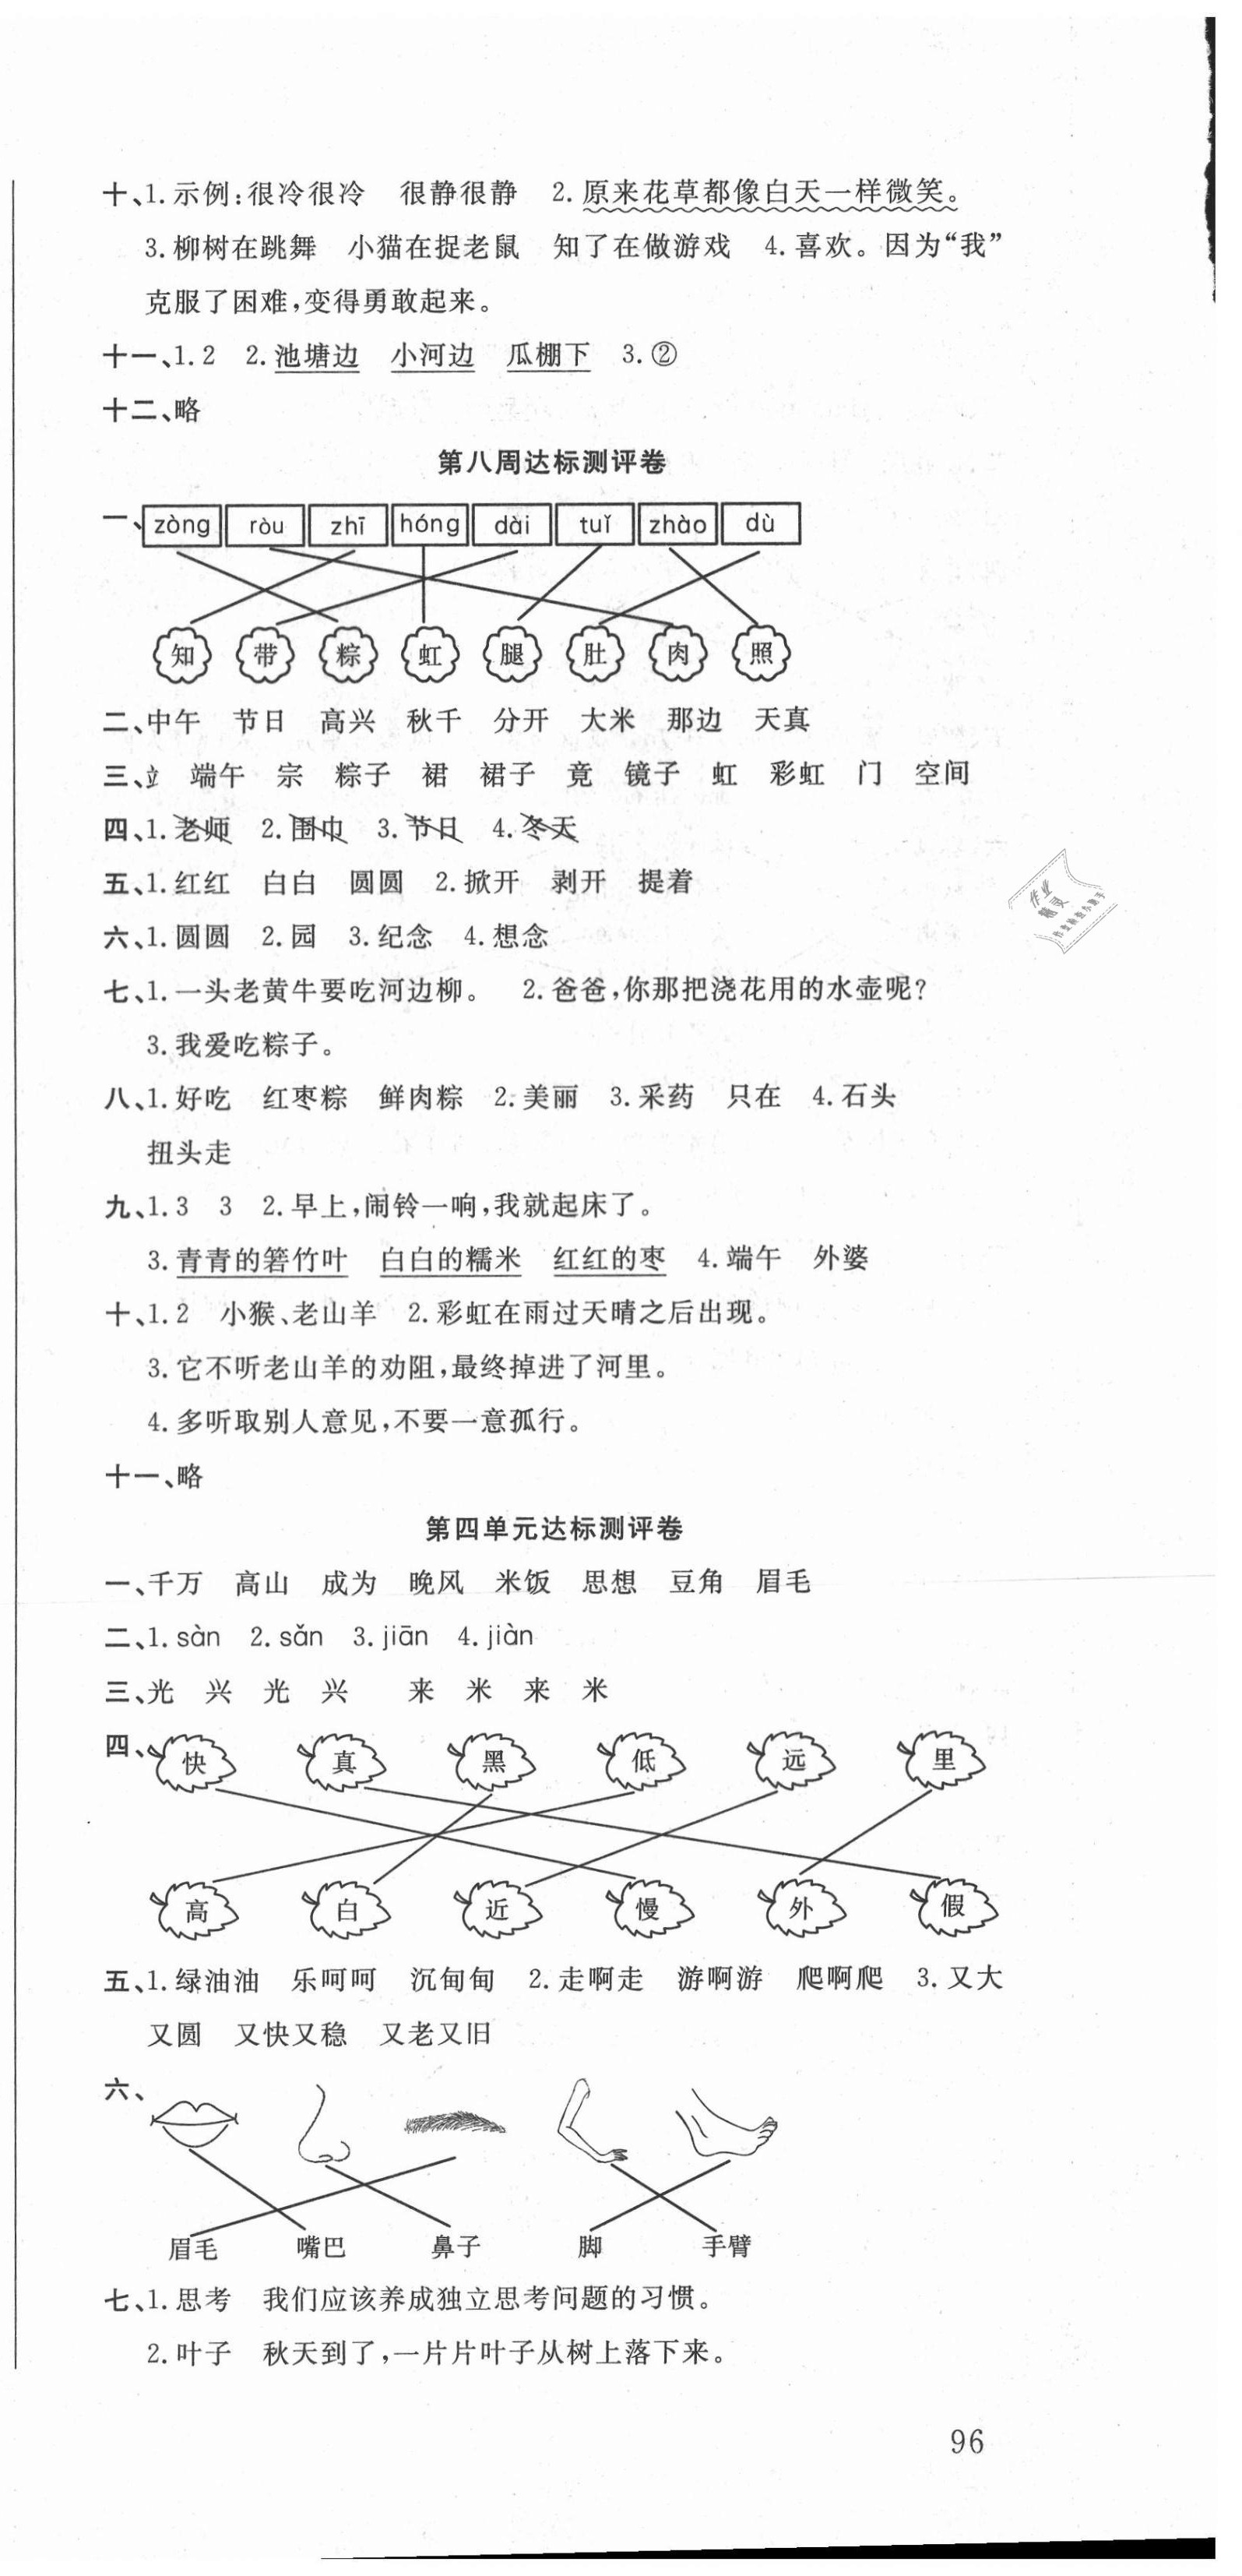 十、1.示例:很冷很冷 很静很静 2.原来花草都像白天一样微笑。
3.柳树在跳舞 小猫在捉老鼠 知了在做游戏 4.喜欢。因为“我”
克服了困难,变得勇敢起来。
十一、1.2 2.池塘边 小河边 瓜棚下 3.②
十二、略
第八周达标测评卷
一、zòng ròu zhī hóng dài tuǐ zhào dù
知 带 粽 虹 腿 肚 肉 照
二、中午 节日 高兴 秋千 分开 大米 那边 天真
三、立 端午 宗 粽子 裙 裙子 竟 镜子 虹 彩虹 门 空间
四、1.老师 2.围巾 3.节日 4.冬天
五、1.红红 白白 圆圆 2.掀开 剥开 提着
六、1.圆圆 2.园 3.纪念 4.想念
七、1.一头老黄牛要吃河边柳。 2.爸爸,你那把浇花用的水壶呢?
3.我爱吃粽子。
八、1.好吃 红枣粽 鲜肉粽 2.美丽 3.采药 只在 4.石头
扭头走
九、1.3 3 2.早上,闹铃一响,我就起床了。
3.青青的箬竹叶 白白的糯米 红红的枣 4.端午 外婆
十、1.2 小猴、老山羊 2.彩虹在雨过天晴之后出现。
3.它不听老山羊的劝阻,最终掉进了河里。
4.多听取别人意见,不要一意孤行。
十一、略
第四单元达标测评卷
一、千万 高山 成为 晚风 米饭 思想 豆角 眉毛
二、1.sàn 2.sǎn 3.jiān 4.jiàn
三、光 兴 光 兴 来 米 来 米
四、快 真 黑 低 远 里
高 白 近 慢 外 假
五、1.绿油油 乐呵呵 沉甸甸 2.走啊走 游啊游 爬啊爬 3.又大
又圆 又快又稳 又老又旧
六、
眉毛 嘴巴 鼻子 脚 手臂
七、1.思考 我们应该养成独立思考问题的习惯。
2.叶子 秋天到了,一片片叶子从树上落下来。
96